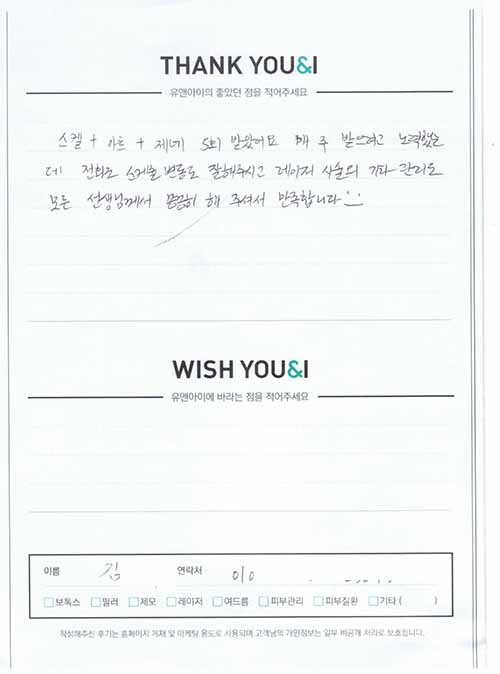 THANK YOU&I
유앤아이의 좋았던 점을 적어주세요
스켈 + 아쿠 + 제네 5회 받았어요 매 주 받으려고 노력했는
데 전화로 스케줄 변동도 잘해주시고 레이저 시술의 기타 관리도
모든 선생님께서 꼼꼼히 해 주셔서 만족합니다
WISH YOU&I
유앤아이에 바라는 점을 적어주세요
이름 김 연락처 010
보톡스 필러 제모 레이저 여드름 피부관리 피부질환 기타 ( )
작성해주신 후기는 홈페이지 게재 및 마케팅 용도로 사용되며 고객님의 개인정보는 일부 비공개 처리로 보호됩니다.